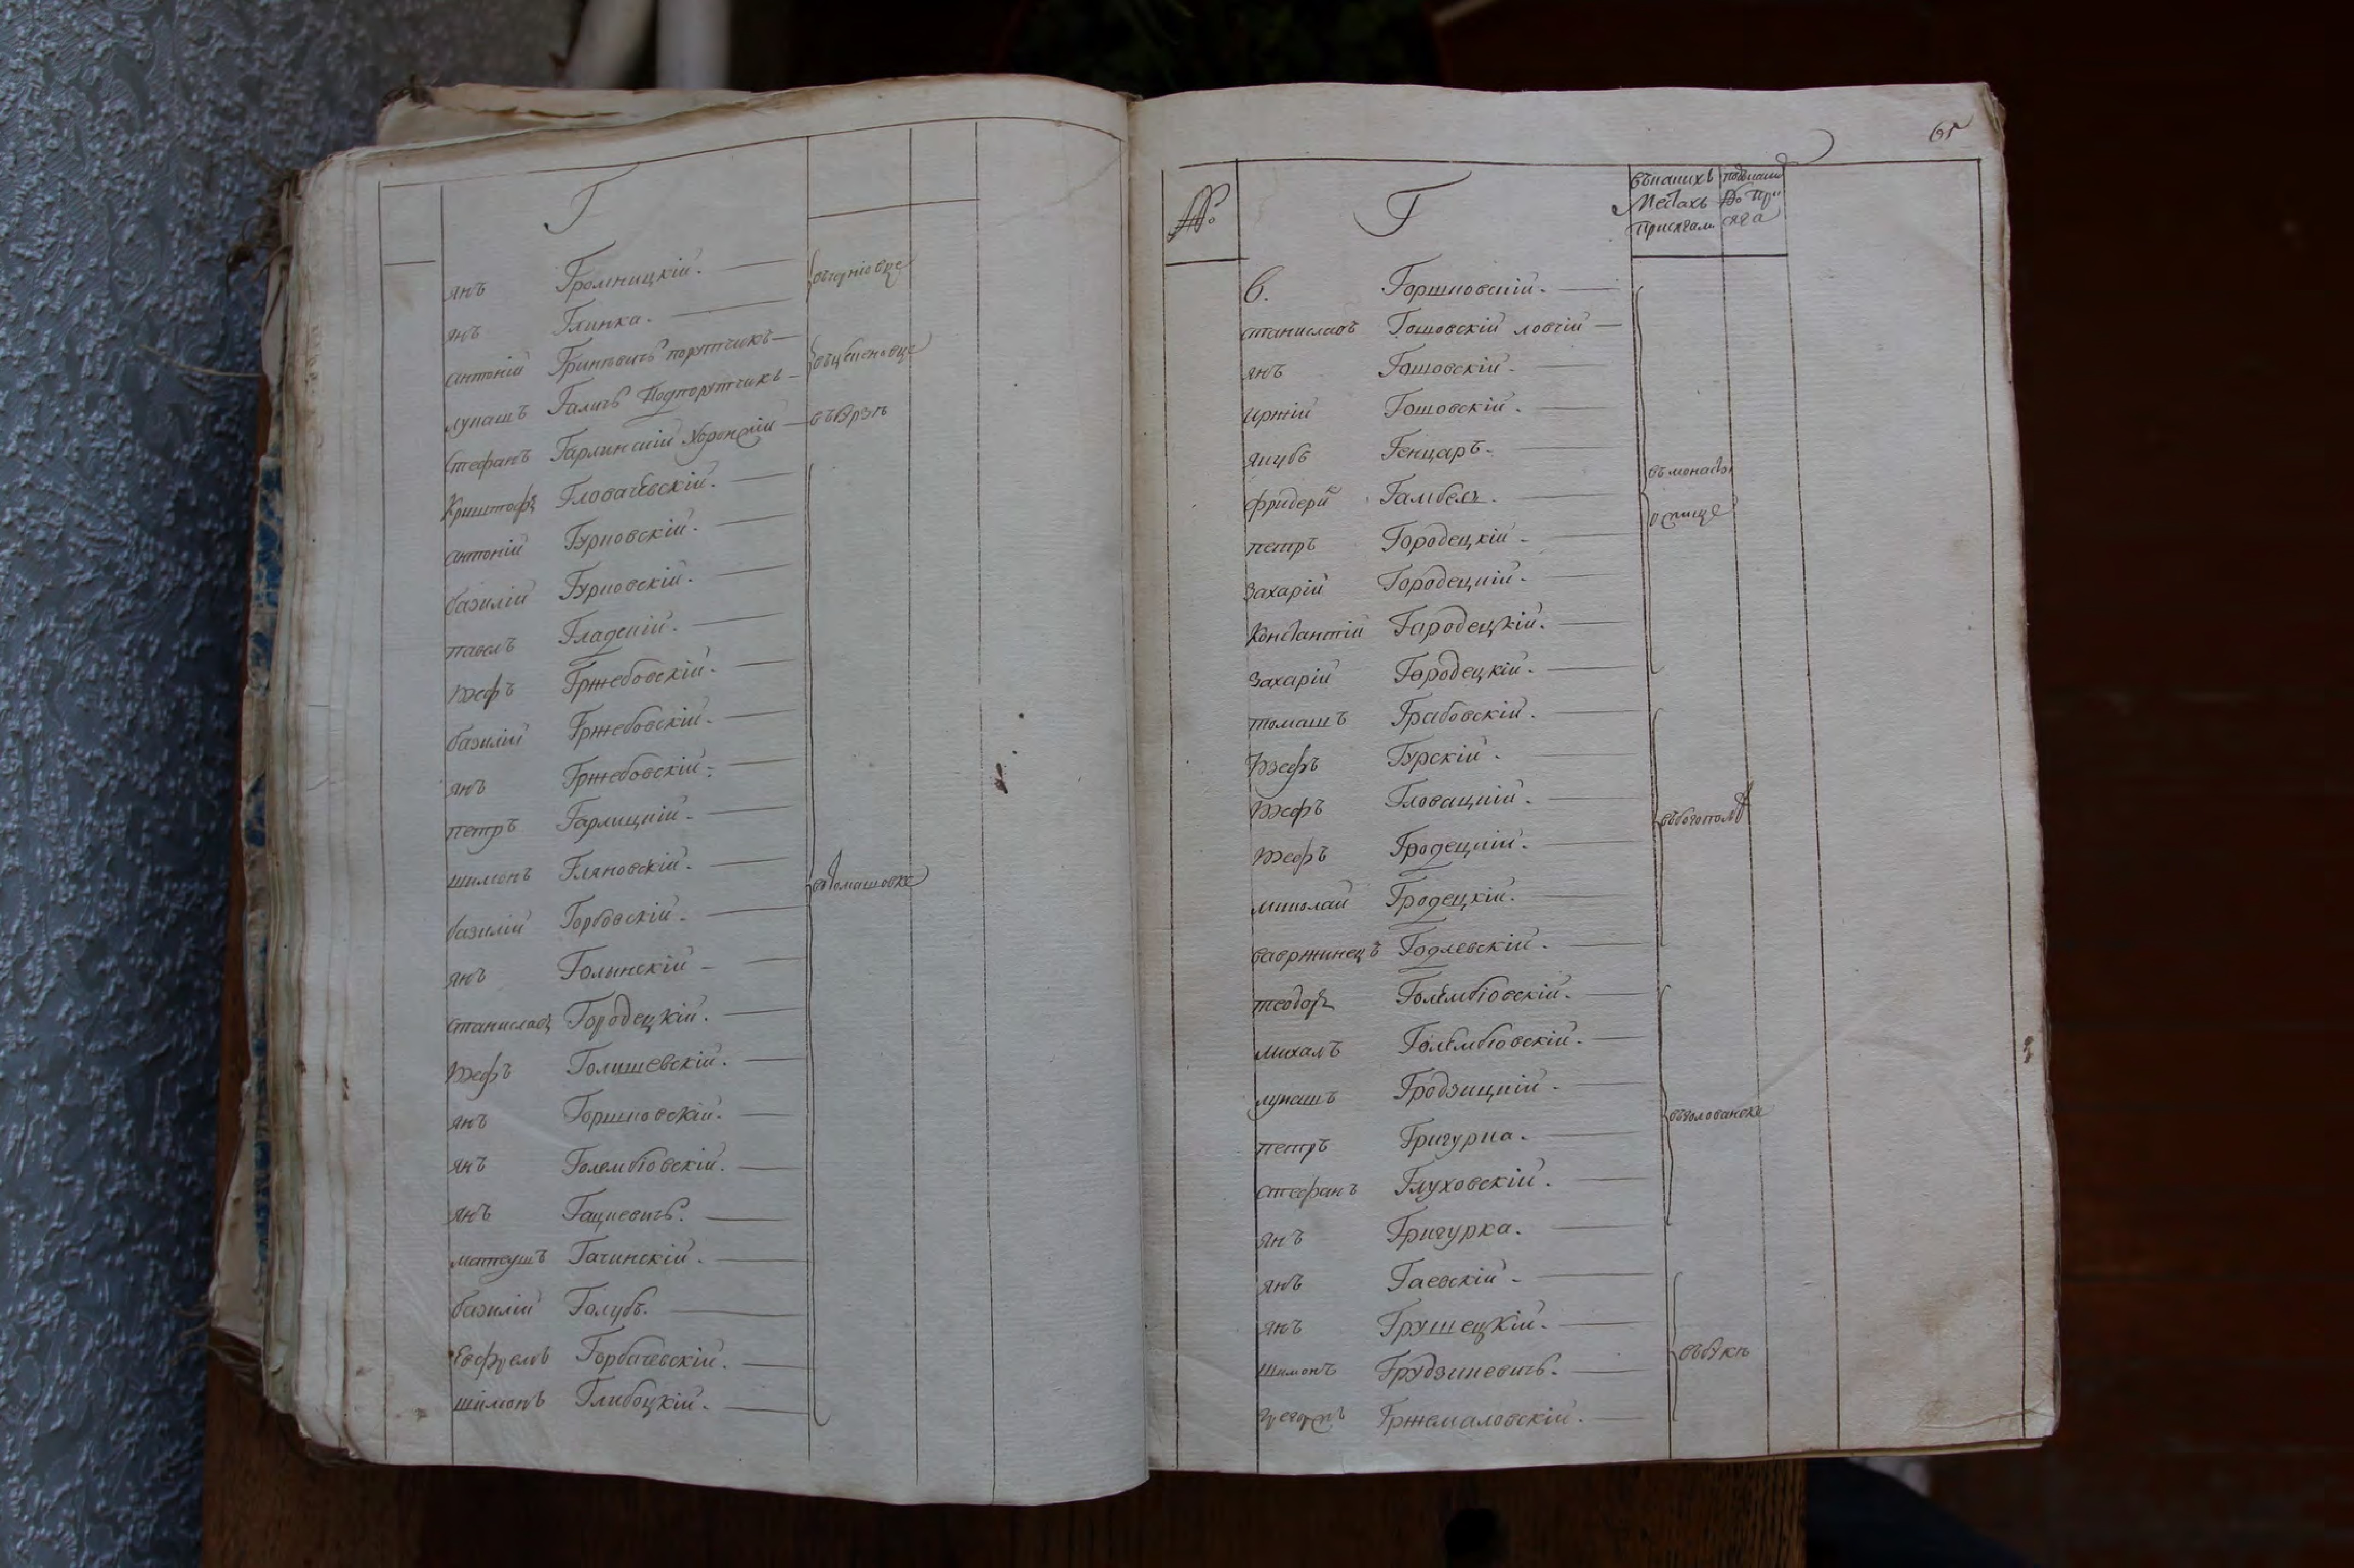 Г
янъ Громницкій.
янъ Глинка.
антоній Гриневичъ порутчикъ
лукашъ Галичъ Подпорутчикъ
Стефанъ Гарлинскій Хоронжій
Криштофъ Гловачевскій.
антоній Гурковскій.
базилій Гурковскій.
павелъ Гладскій.
Юзефъ Гржебовскій.
базилій Гржебовскій.
янъ Гржебовскій.
петръ Гарлицкій.
шимонъ Гляновскій. въ томашовке
базилій Горбовскій.
янъ Голынскій
станиславъ Городецкій.
Юзефъ Голишевскій.
янъ Горшковскій.
янъ Голембіовскій.
янъ Гацкевичъ.
матеушъ Гачинскій.
базилій Голубъ.
Горбачевскій.
шимонъ Глибоцкій.
65
№
Г
Местахъ
присягали
До при
сяга
6. Горшковскій.
станиславъ Гошовскій ловчій
янъ Гошовскій.
Гошовскій.
якубъ Генцаръ.
фридерик Гамбелъ.
петръ Городецкій.
захарій Городецкій.
Константій Городецкій.
захарій Городецкій.
томашъ Грабовскій.
Юзефъ Гурскій.
Юзефъ Гловацкій.
въ богополѣ
Юзефъ Гродецкій.
миколай Гродецкій.
вавржинецъ Годлевскій.
теодоръ Голембіовскій.
михалъ Голембіовскій.
лукашъ Гродзицкій.
въ голованевке
петръ Григурка.
стефанъ Глуховскій.
янъ Григурка.
янъ Гаевскій.
янъ Грушецкій.
шимонъ Грудзиневичъ.
Гржемаловскій.